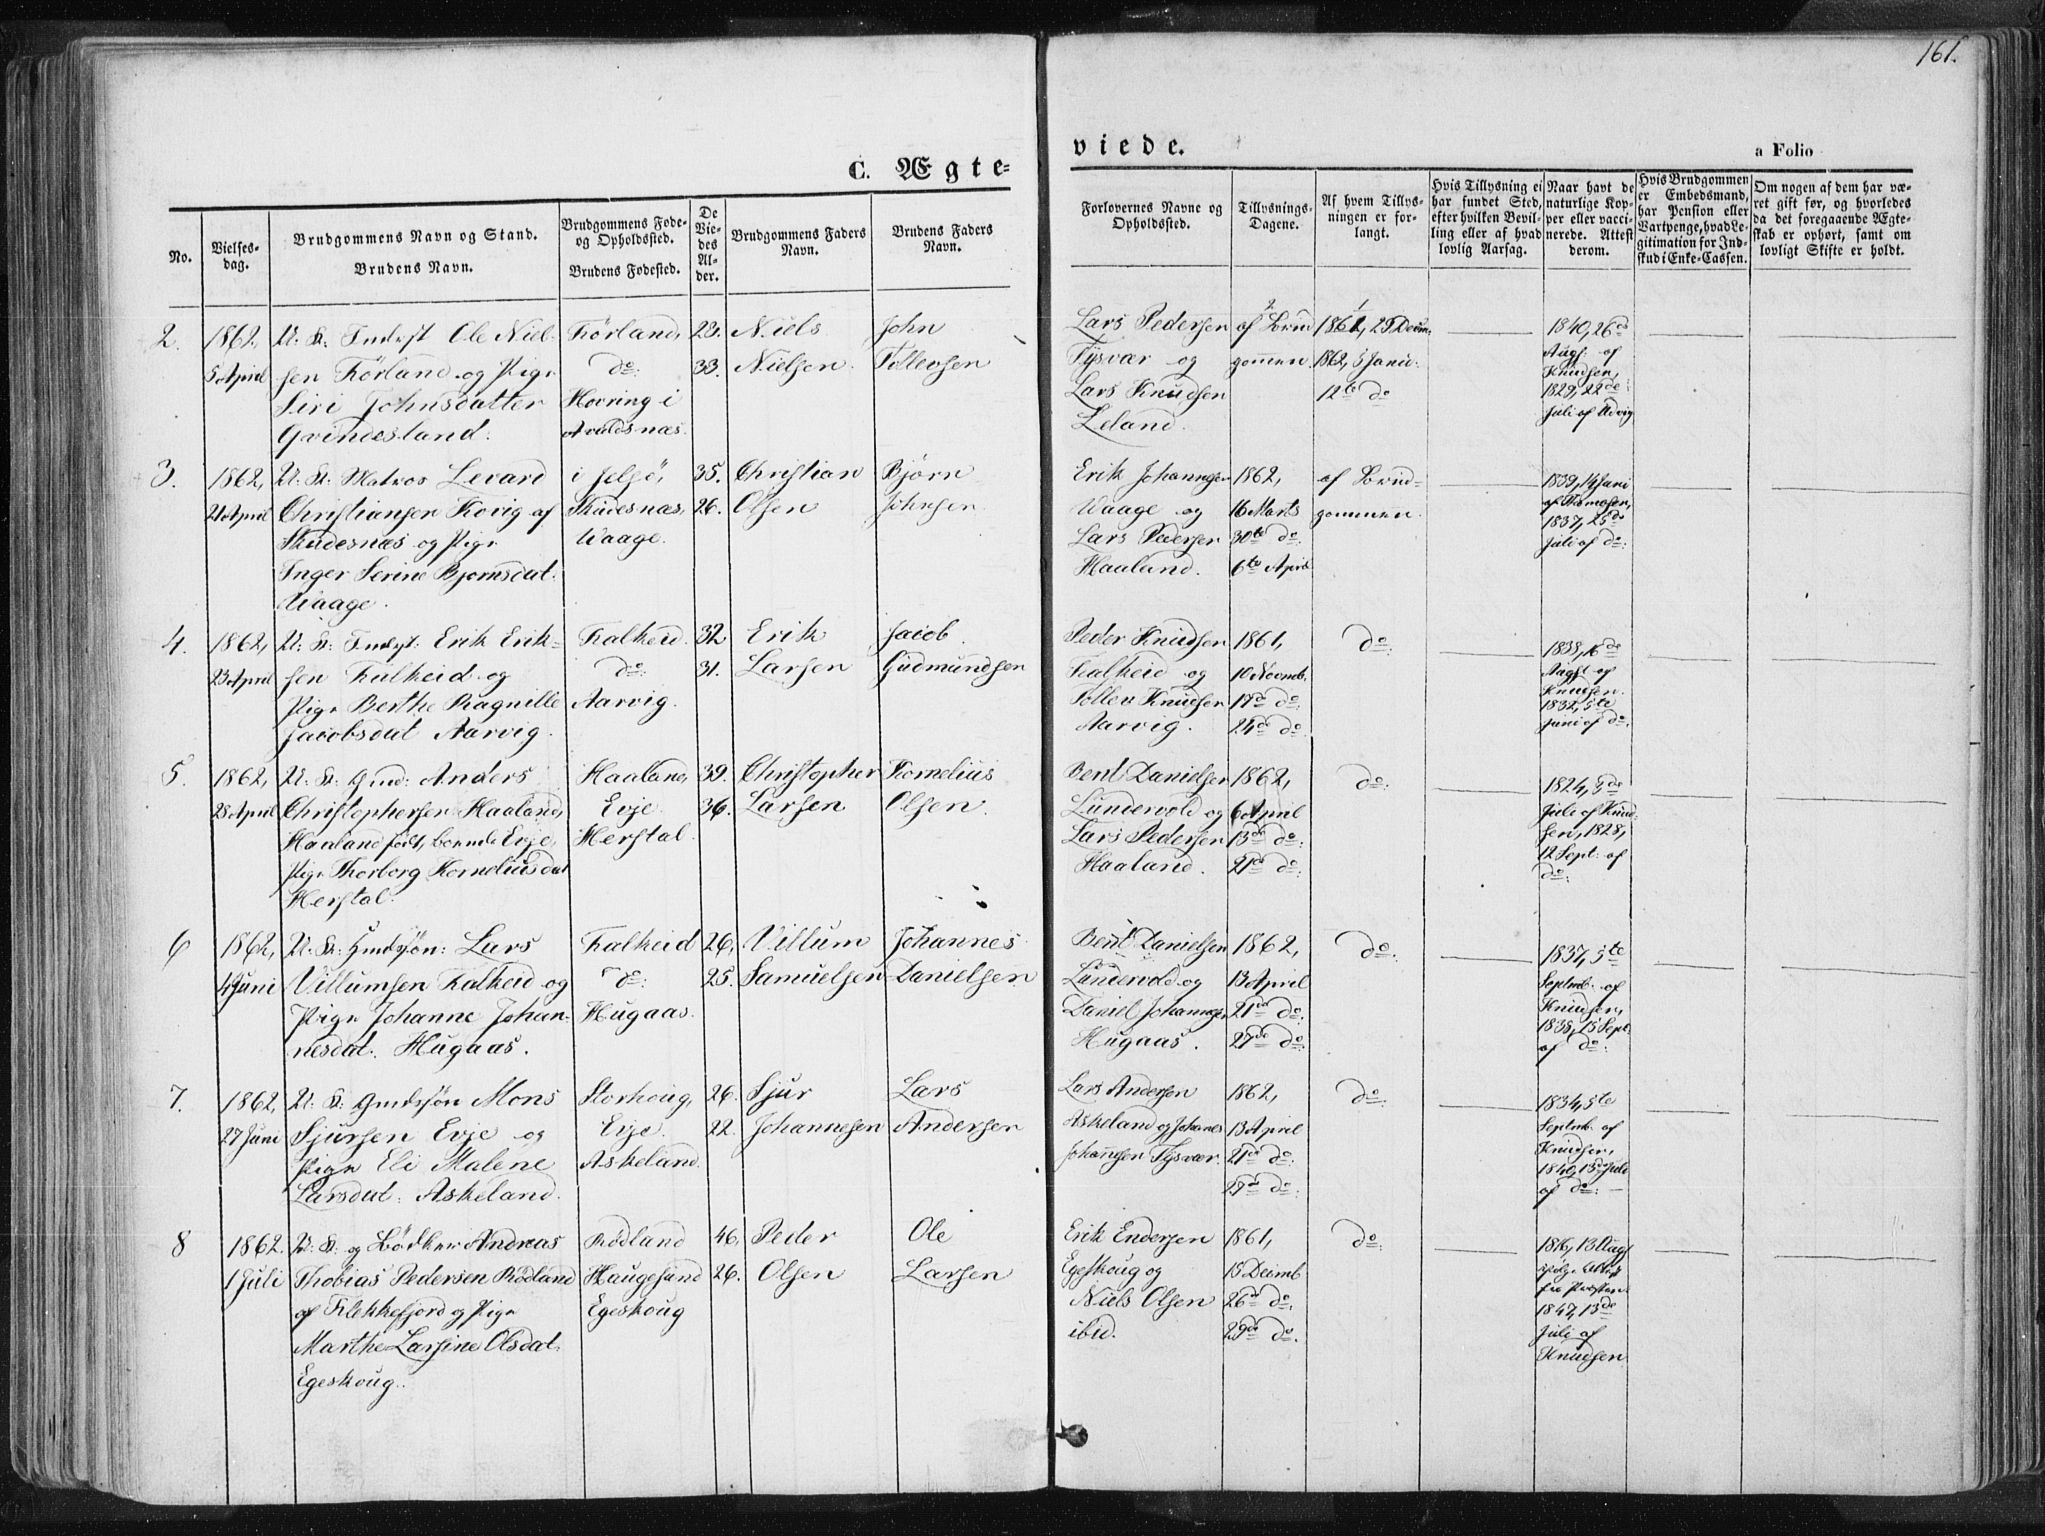 161.
C. Ægte-
viede.
a Folio
No.
Vielses-
dag.
Brudgommens Navn og Stand.
Brudens Navn.
Brudgommens Føde-
og Opholdssted.
Brudens Fødested.
De
Vie-
des
Al-
der.
Brudgommens Faders
Navn.
Brudens Faders
Navn.
Forlovernes Navne og
Opholdssted.
Tillysnings-
Dagene.
Af hvem Tillys-
ningen er for-
langt.
Hvis Tillysning ei
har fundet Sted,
efter hvilken Bevil-
ling eller af hvad
lovlig Aarsag.
Naar havt de
naturlige Kop-
per eller vacci-
nerede. Attest
derom.
Hvis Brudgommen
er Embedsmand,
har Pension eller
Vartpenge, hvad Le-
gitimation for Ind-
skud i Enke-Cassen.
Om nogen af dem har væ-
ret gift før, og hvorledes
da det foregaaende Ægte-
skab er ophørt, samt om
lovligt Skifte er holdt.
2.
1862,
5 April
U: K: Indsst Ole Niel-
sen Førland og Pige
Siri Johnsdatter
Gvindesland.
Førland,
do:
Hovring i
Avaldsnæs.
23.
33.
Niels
Nielsen.
John
Tollevsen
Lars Pedersen
Tysvær og
Lars Knudsen
Leland.
2
af Brud
gommen
1
1861, 29 Decm.
1862, 5 Janu:
12te do
1840, 26de
Augs: af
Knudsen,
1829, 22de
Juli af Udvig
3.
1862,
21 April
U: K: Matros Levard
Christiansen Kovig af
Skudesnæs og Pige
Inger Serine Bjørnsdat:
Waage.
i Jelsø,
Skudesnæs,
Waage.
35.
26.
Christian
Olsen
Bjørn
Johnsen
Erik Johannesen
Waage og
Lars Pedersen
Haaland.
1862,
16 Marts
30te do:
6te April
af Brud-
gommen.
1839, 14 Juni
af Thomasen,
1837, 25de
Juli af do:
4.
1862,
23 April
U: K: Indsst: Erik Erik-
sen Falkeid og
Pige Berthe Ragnille
Jacobsdat Aarvig.
Falkeid.
do:
Aarvig.
32
31.
Erik
Larsen
Jacob
Gudmundsen
Peder Knudsen
Falkeid og
Tollev Knudsen
Aarvig.
1861,
10 Novmb.
17de do:
24de do:
do:
1833, 16de
Augst af
Knudsen.
1832, 5te
Juni af do:
5.
1862,
28 April
U: K: Gmd: Anders
Christophersen Haaland,
Haaland født, boende Evje,
Pige Thorborg Korneliusdat
Herstal.
Haaland,
Evje
Herstal.
39.
36.
Christopher
Larsen
Kornelius
Olsen.
Bent Danielsen
Lundervold og
Lars Pedersen
Haaland.
1862,
6 April
13de do:
21de do:
do:
1824, 3de
Juli af Knud
sen, 1828,
12 Sept: af
do:
6
1862,
4 Juni
U: K: Gmdssøn: Lars
Villumsen Falkeid og
Pige Johanne Johan-
nesdat: Hugaas.
Falkeid
do:
Hugaas.
26,
25.
Villum
Samuelsen
Johannes
Danielsen
Bent Danielsen
Lundervold og
Daniel Johannesen
Hugaas.
1862,
13 April
21de do:
27de do:
do:
1837, 5te
Septmb. af
Knudsen,
1838, 15 Sept.
af do:
7.
1862,
27 Juni
U: K: Gmdssøn Mons
Sjursen Evje og
Pige Eli Malene
Larsdat: Askeland.
Storhoug,
Evje.
Askeland.
26.
22.
Sjur
Johannesen
Lars
Andersen
Lars Andersen
Askeland og Johanes
Johannsen Tysvær.
1862,
13 April
21de do:
27de do:
do:
1834, 5te
Septmb. af
Knudsen,
1840, 13de Juli
af do: —
8
1862.
1 Juli
U: K: og Bødker Andreas
Thobias Pedersen Rødland
af Flekkefjord og Pige
Marthe Larsine Olsdat.
Egeskoug.
Rødland
Haugesund
Egeskoug
46,
26.
Peder
Olsen
Ole
Larsen
Erik Endersen
Egeskoug og
Niels Olsen
ibid.
1861,
15 Decmb
26de do:
29de do.
do:
1816, 13 Augs
ifølge Attest
fra Præsten
1847, 13de
Juli af
Knudsen